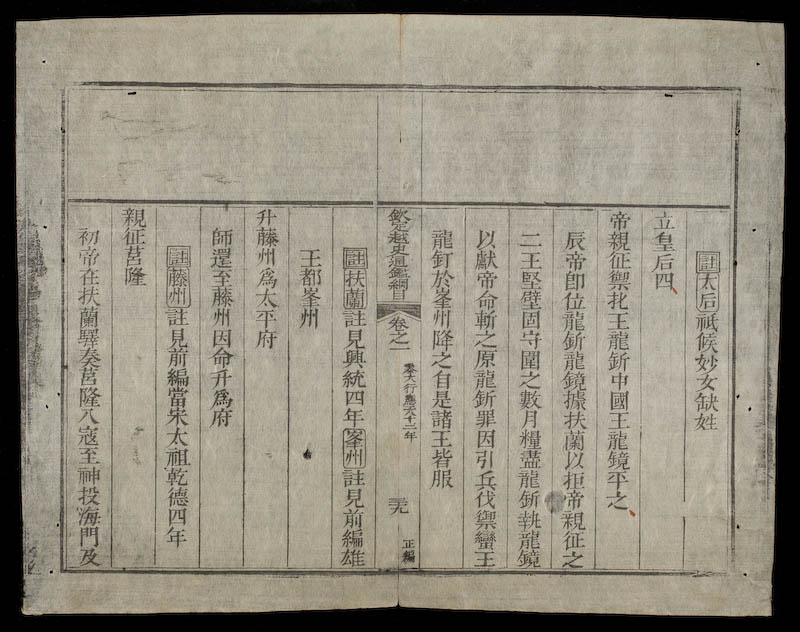 註太后祗候妙女缺姓
立皇后四
帝親征禦北王龍釿中國王龍鏡平之
辰帝卽位龍釿龍鏡據扶蘭以拒帝親征之
二王堅壁固守圍之數月糧盡龍釿執龍鏡
以獻帝命斬之原龍釿罪因引兵伐禦蠻王
龍釘於峯州降之自是諸王皆服
欽定越史通鑑綱目 卷之二 黎大行應天十二年 三九 正編
註扶蘭註見興統四年峯州註見前編雄
王都峯州
升藤州爲太平府
師還至藤州因命升爲府
註藤州註見前編當宋太祖乾德四年
親征莒隆
初帝在扶蘭驛奏莒隆入寇至神投海門及